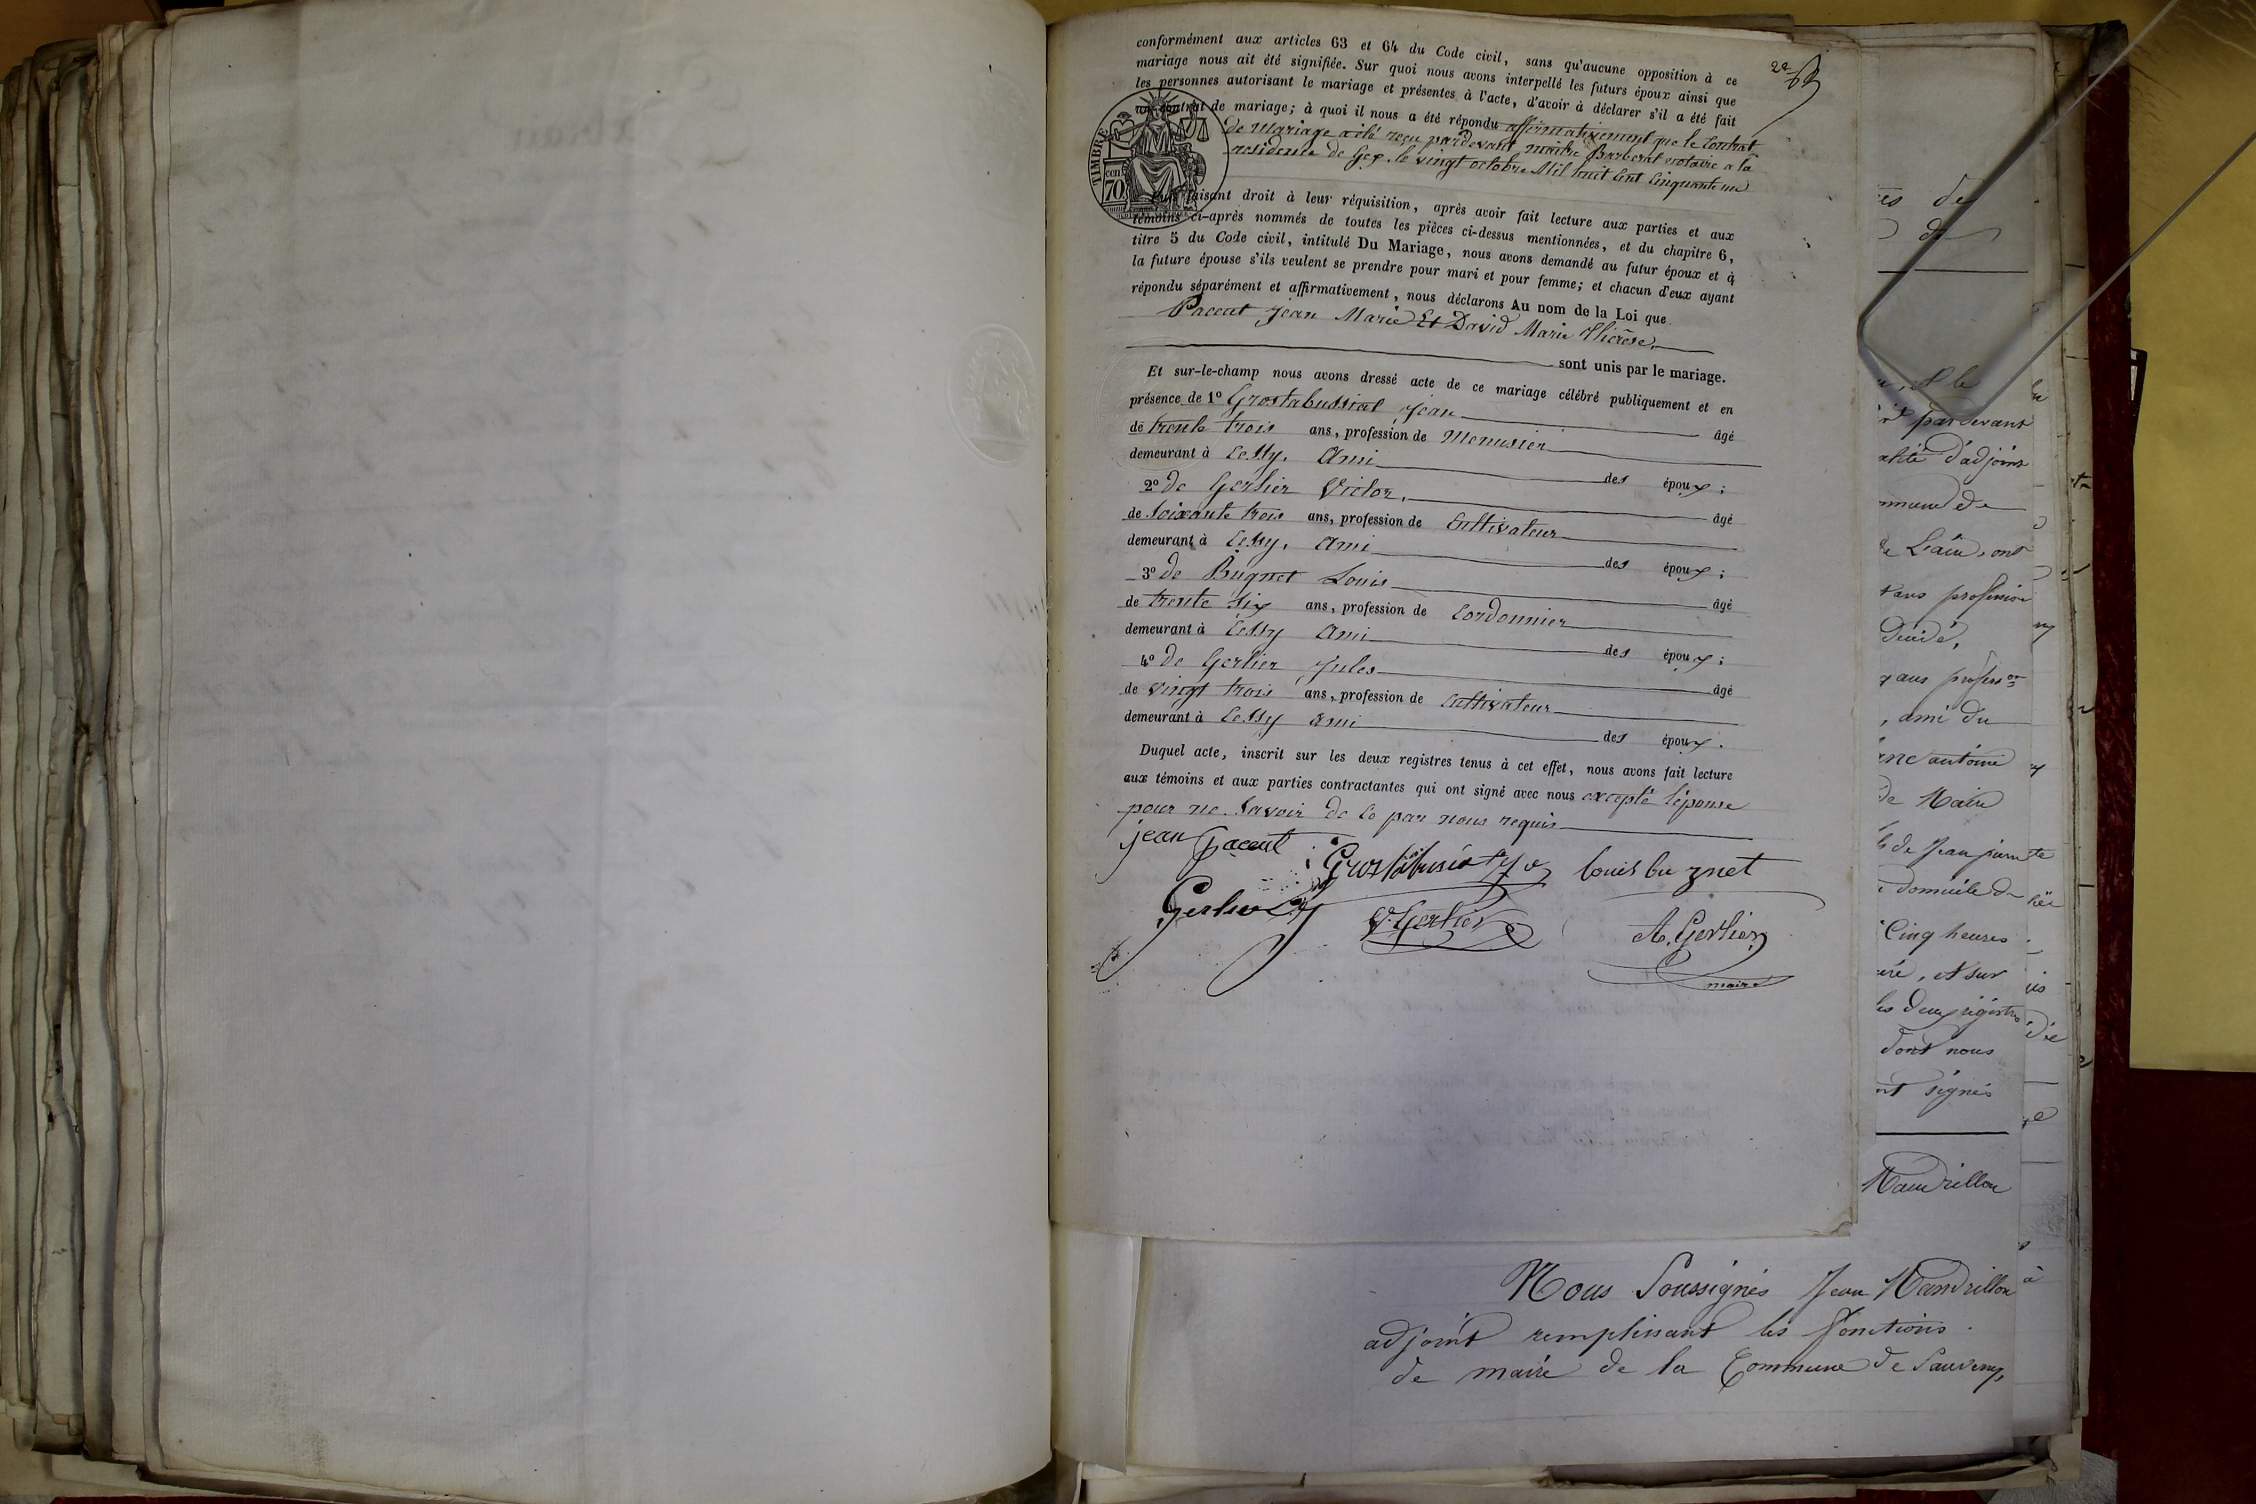 conformément aux articles 63 et 64 du Code civil, sans qu'aucune opposition à ce
mariage nous ait été signifiée. Sur quoi nous avons interpellé les futurs époux ainsi que
les personnes autorisant le mariage et présentes à l'acte, d'avoir à déclarer s'il a été fait
un contrat de mariage; à quoi il nous a été répondu affirmativement que le Contrat
de Mariage a été reçu pardevant maitre Barberat notaire a la
residence de Gex. le vingt octobre Mil huit Cent Cinquante un
TIMBRE
cen
70
faisant droit à leur réquisition, après avoir fait lecture aux parties et aux
témoins ci-après nommés de toutes les pièces ci-dessus mentionnées, et du chapitre 6,
titre 5 du Code civil, intitulé Du Mariage, nous avons demandé au futur époux et à
la future épouse s'ils veulent se prendre pour mari et pour femme; et chacun d'eux ayant
répondu séparément et affirmativement, nous déclarons Au nom de la Loi que
Paccat Jean Marie Et David Marie Thérèse.
sont unis par le mariage.
Et sur-le-champ nous avons dressé acte de ce mariage célébré publiquement et en
présence de 1º Grostabussiat Jean
âgé
de trente trois ans, profession de Menusier
demeurant à Cessy. Ami des époux;
2º de Gerlier Victor.
âgé
de Soixante trois ans, profession de Cultivateur
demeurant à Cessy. Ami des époux;
3º de Bugnet Louis
âgé
de trente Six ans, profession de Cordonnier
demeurant à Cessy Ami des époux;
4º de Gerlier Jules
âgé
de vingt trois ans, profession de Cultivateur
demeurant à Cessy Ami des époux.
Duquel acte, inscrit sur les deux registres tenus à cet effet, nous avons fait lecture
aux témoins et aux parties contractantes qui ont signé avec nous excepté l'épouse
pour ne Savoir de Ce par nous requis
jean paccat
louis bugnet
Gerlier
V. Gerlier
A. Gerlier
maire
de
pardevant
d'adjoint
de
de L'ain, ont
sans profession
, ami du
antoine
de Maire
de Jean pierre
domicile de
Cinq heures
, et sur
les deux régistres
dont nous
signés
Mandrillon
Nous Soussignés Jean Mandrillon
adjoint remplissant les fonctions
de maire de la Commune de Sauverny,